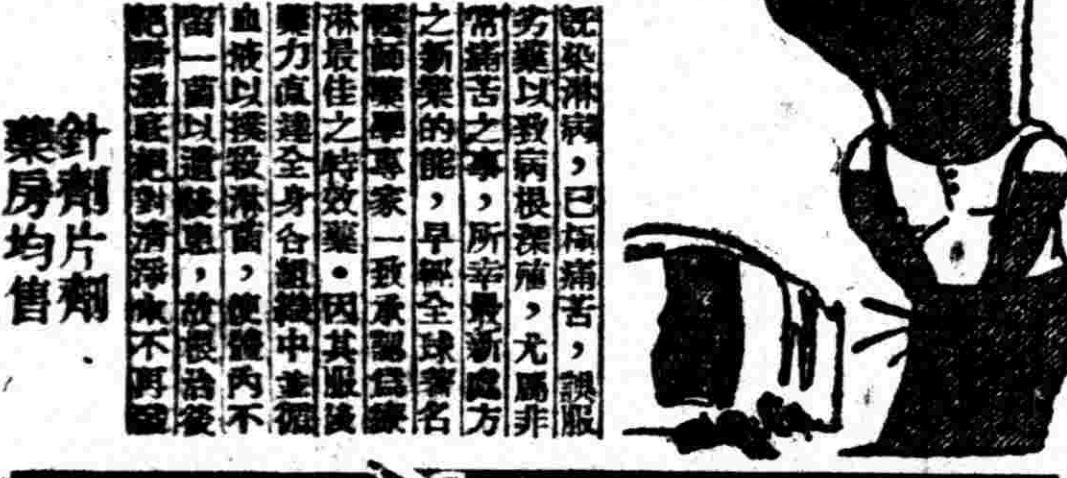 既染淋病，已極痛苦，誤服
劣藥以致病根深殖，尤屬非
常痛苦之事，所幸最新處方
之新藥的能，早經全球著名
醫師藥學專家一致承認爲療
淋最佳之特效藥。因其服後
藥力直達全身各組織中並循
血液以撲殺淋菌，使體內不
留一菌以遺後患，故根治後
絕對清淨永不再
針劑片劑
藥房均售